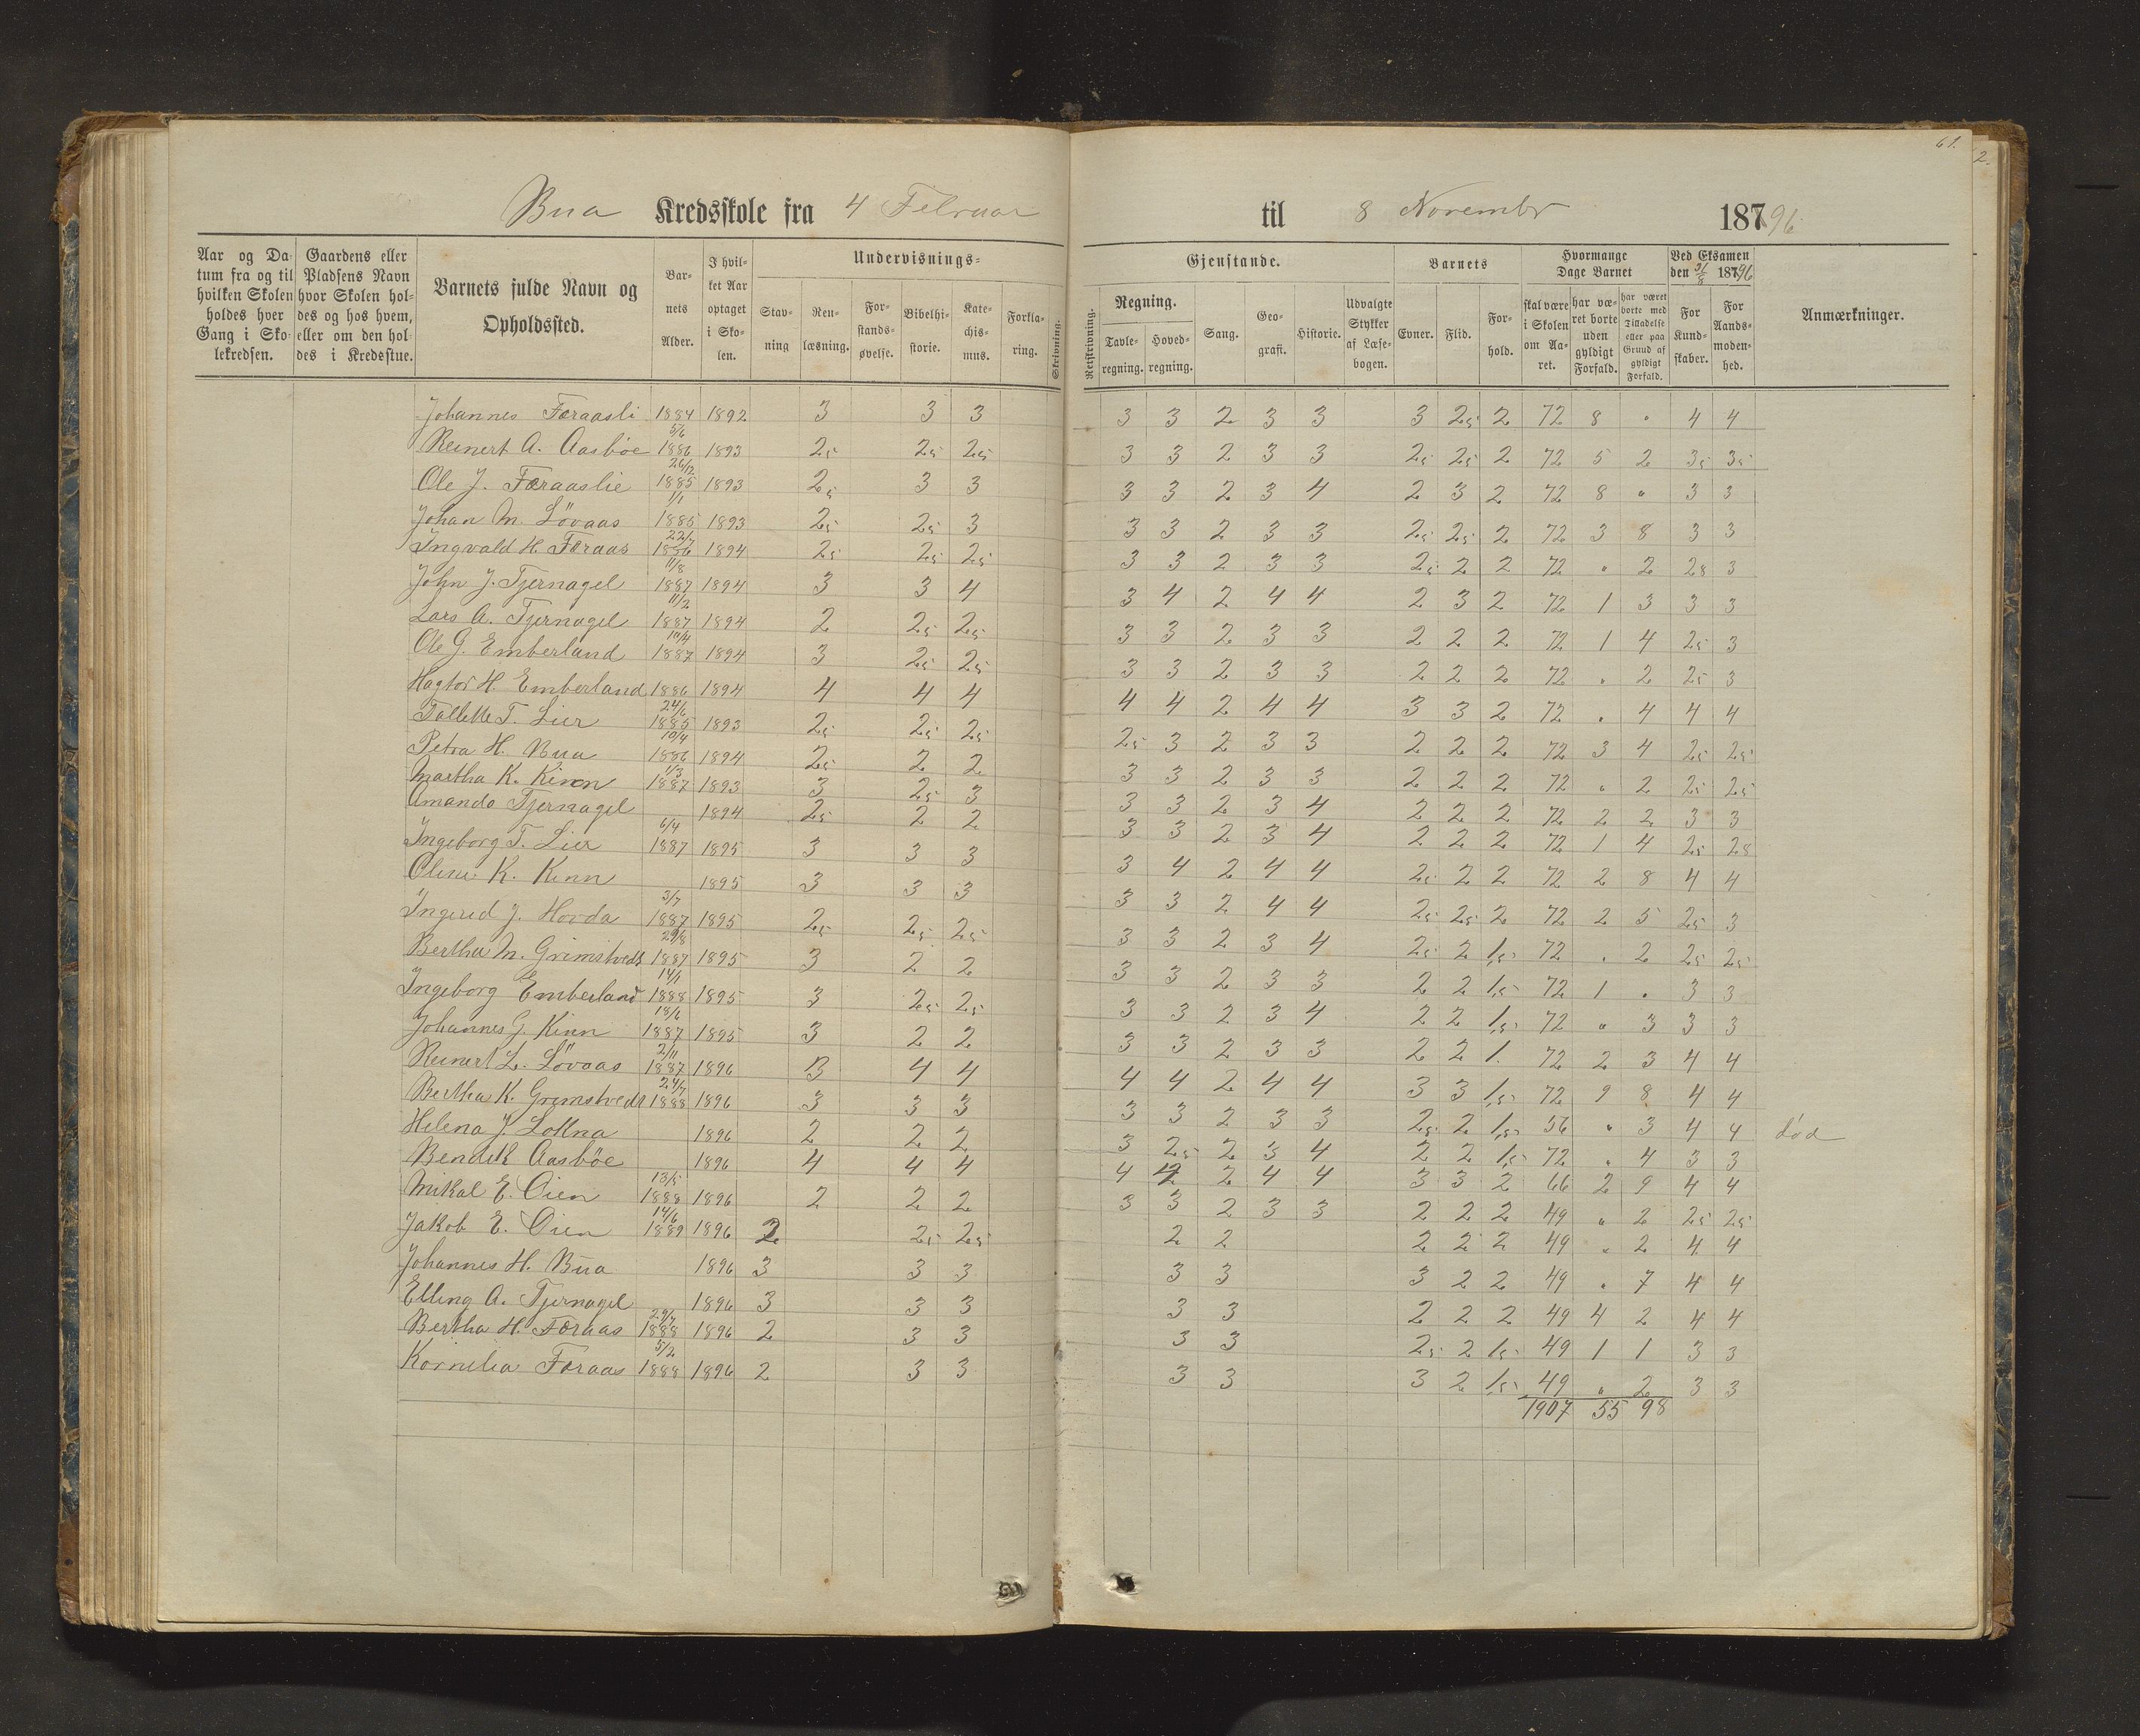 61.
2.
Bua Kredsskole fra 4 Februar til 8 Novembr 18796
Aar og Datum fra og til hvilken Skolen holdes hver Gang i Skolekredsen.
Gaardens eller Pladsens Navn hvor Skolen holdes og hos hvem, eller om den holdes i Kredsstue.
Barnets fulde Navn og Opholdssted.
Barnets Alder.
I hvilket Aar optaget i Skolen.
Undervisnings-
Stavning
Renlæsning.
Forstandsøvelse.
Bibelhistorie.
Katechismus.
Forklaring.
Skrivning.
Gjenstande.
Retskrivning.
Regning.
Tavleregning.
Hovedregning.
Sang.
Geografi.
Historie.
Udvalgte Stykker af Læsebogen.
Barnets
Evner.
Flid.
Forhold.
Hvormange Dage Barnet
skal være i Skolen om Aaret.
har været borte uden gyldigt Forfald.
har været borte med Tilladelse eller paa Grund af gyldigt Forfald.
Ved Eksamen den 31/8 18796
For Kundskaber.
For Aandsmodenhed.
Anmærkninger.
Johannes Færaasli 1884 1892 3 3 3 3 3 2 3 3 3 25 2 72 8 " 4 4
Reinert A. Aasbøe 5/6 1886 1893 25 25 25 3 3 2 3 3 25 25 2 72 5 2 35 35
Ole J. Færaaslie 26/12 1885 1893 25 3 3 3 3 2 3 4 2 3 2 72 8 " 3 3
Johan M. Lövaas 1/1 1885 1893 25 25 3 3 3 2 3 3 25 25 2 72 3 8 3 3
Ingvald H. Færaas 22/7 1886 1894 25 25 25 3 3 2 3 3 25 2 2 72 " 2 28 3
John J. Tjernagel 11/8 1887 1894 3 3 4 3 4 2 4 4 2 3 2 72 1 3 3 3
Lars A. Tjernagel 11/2 1887 1894 2 25 25 3 3 2 3 3 2 2 2 72 1 4 25 3
Ole G. Emberland 10/4 1887 1894 3 25 25 3 3 2 3 3 2 2 2 72 " 2 25 3
Hagtor H. Emberland 1886 1894 4 4 4 4 4 2 4 4 3 3 2 72 " 4 4 4
Tallette T. Lier 24/6 1885 1893 25 25 25 25 3 2 3 3 2 2 2 72 3 4 25 25
Petra H. Bua 10/4 1886 1894 25 2 2 3 3 2 3 3 2 2 2 72 " 2 25 25
Martha K. Kinn 1/3 1887 1893 3 25 3 3 3 2 3 4 2 2 2 72 2 2 3 3
Amanda Tjernagel 1894 25 2 2 3 3 2 3 4 2 2 2 72 1 4 25 28
Ingeborg T. Lier 6/4 1887 1895 3 3 3 3 4 2 4 4 25 2 2 72 2 8 4 4
Oline K. Kinn 1895 3 3 3 3 3 2 4 4 25 25 2 72 2 5 25 3
Ingered J. Hovda 3/7 1887 1895 25 25 25 3 3 2 3 4 25 2 1,5 72 " 2 25 25
Bertha M. Grimstvedt 29/8 1887 1895 3 2 2 3 3 2 3 3 2 2 1,5 72 1 " 3 3
Ingeborg Emberland 14/1 1888 1895 3 25 25 3 3 2 3 4 2 2 1,5 72 " 3 3 3
Johannes G. Kinn 18/6 1887 1895 3 2 2 3 3 2 3 3 2 2 1. 72 2 3 4 4
Reinert L. Lövaas 2/11 1887 1896 3 4 4 4 4 2 4 4 3 3 1,5 72 9 8 4 4
Bertha K. Grimstvedt 24/7 1888 1896 3 3 3 3 3 2 3 3 25 2 1,5 56 " 3 4 4 död
Helena J. Lokna 1896 2 2 2 3 25 2 3 4 2 2 1,5 72 " 4 3 3
Bendik Aasböe 1896 4 4 4 4 4 2 4 4 3 3 2 66 2 9 4 4
Mikal E. Öien 13/5 1888 1896 2 2 2 3 3 2 3 3 2 2 2 49 " 2 25 25
Jakob E. Öien 14/6 1889 1896 2 25 25 2 2 2 2 2 49 " 2 4 4
Johannes H. Bua 1896 3 3 3 3 3 3 2 2 49 " 7 4 4
Elling A. Tjernagel 1896 3 3 3 3 3 2 2 2 49 4 2 4 4
Bertha H. Færaas 29/7 1888 1896 2 3 3 3 3 25 2 1,5 49 1 1 3 3
Kornelia Færaas 5/2 1888 1896 2 3 3 3 3 3 2 1,5 49 " 2 3 3
1907 55 98